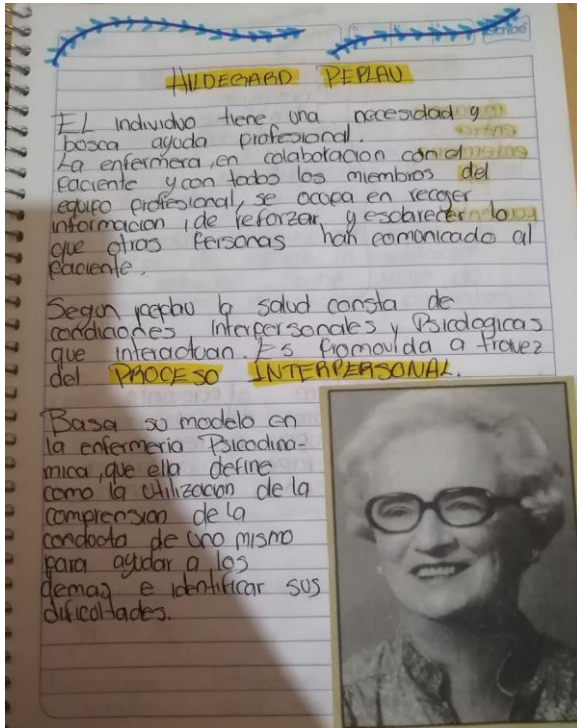 scribe
HILDEGARD PEPLAU
EL individuo tiene una necesidad y
bosca ayuda profesional.
La enfermera, en colaboracion con el
Paciente y con todos los miembros del
equipo profesional, se ocupa en recoger
informacion, de reforzar, y esclarecer lo
que otras Personas han comunicado al
Paciente.
Segun peplau la salud consta de
condiciones Interpersonales y Psicologicas
que interactuan. Es Promovida a travez
del PROCESO INTERPERSONAL.
Basa su modelo en
la enfermeria Psicodina-
mica, que ella define
como la utilizacion de la
comprension de la
conducta de uno mismo
para ayudar a los
demaz e identificar sus
dificoltades.